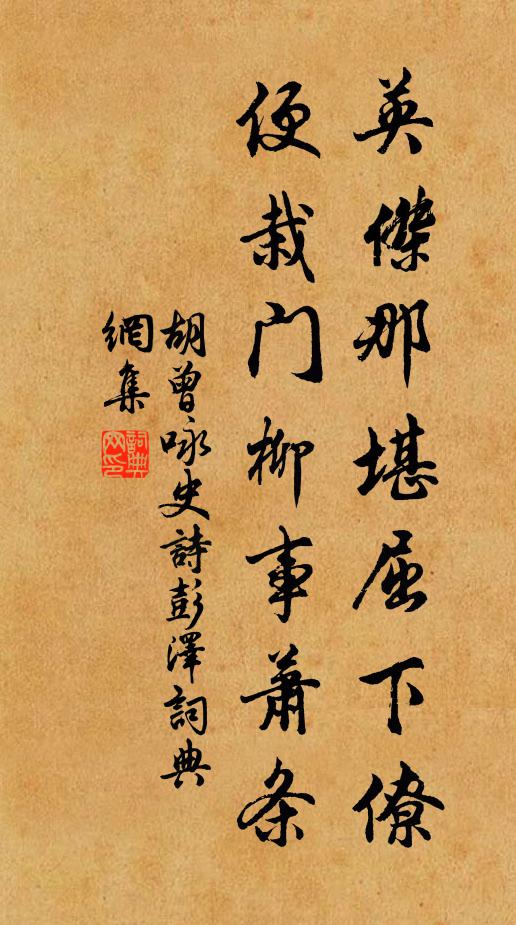 英傑那堪屈下僚
便栽門柳事蕭条
胡曾咏史詩彭澤詞典
網集
詞典
网印